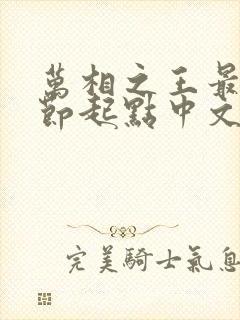 萬相之王最
節起點中文
完美騎士氣息